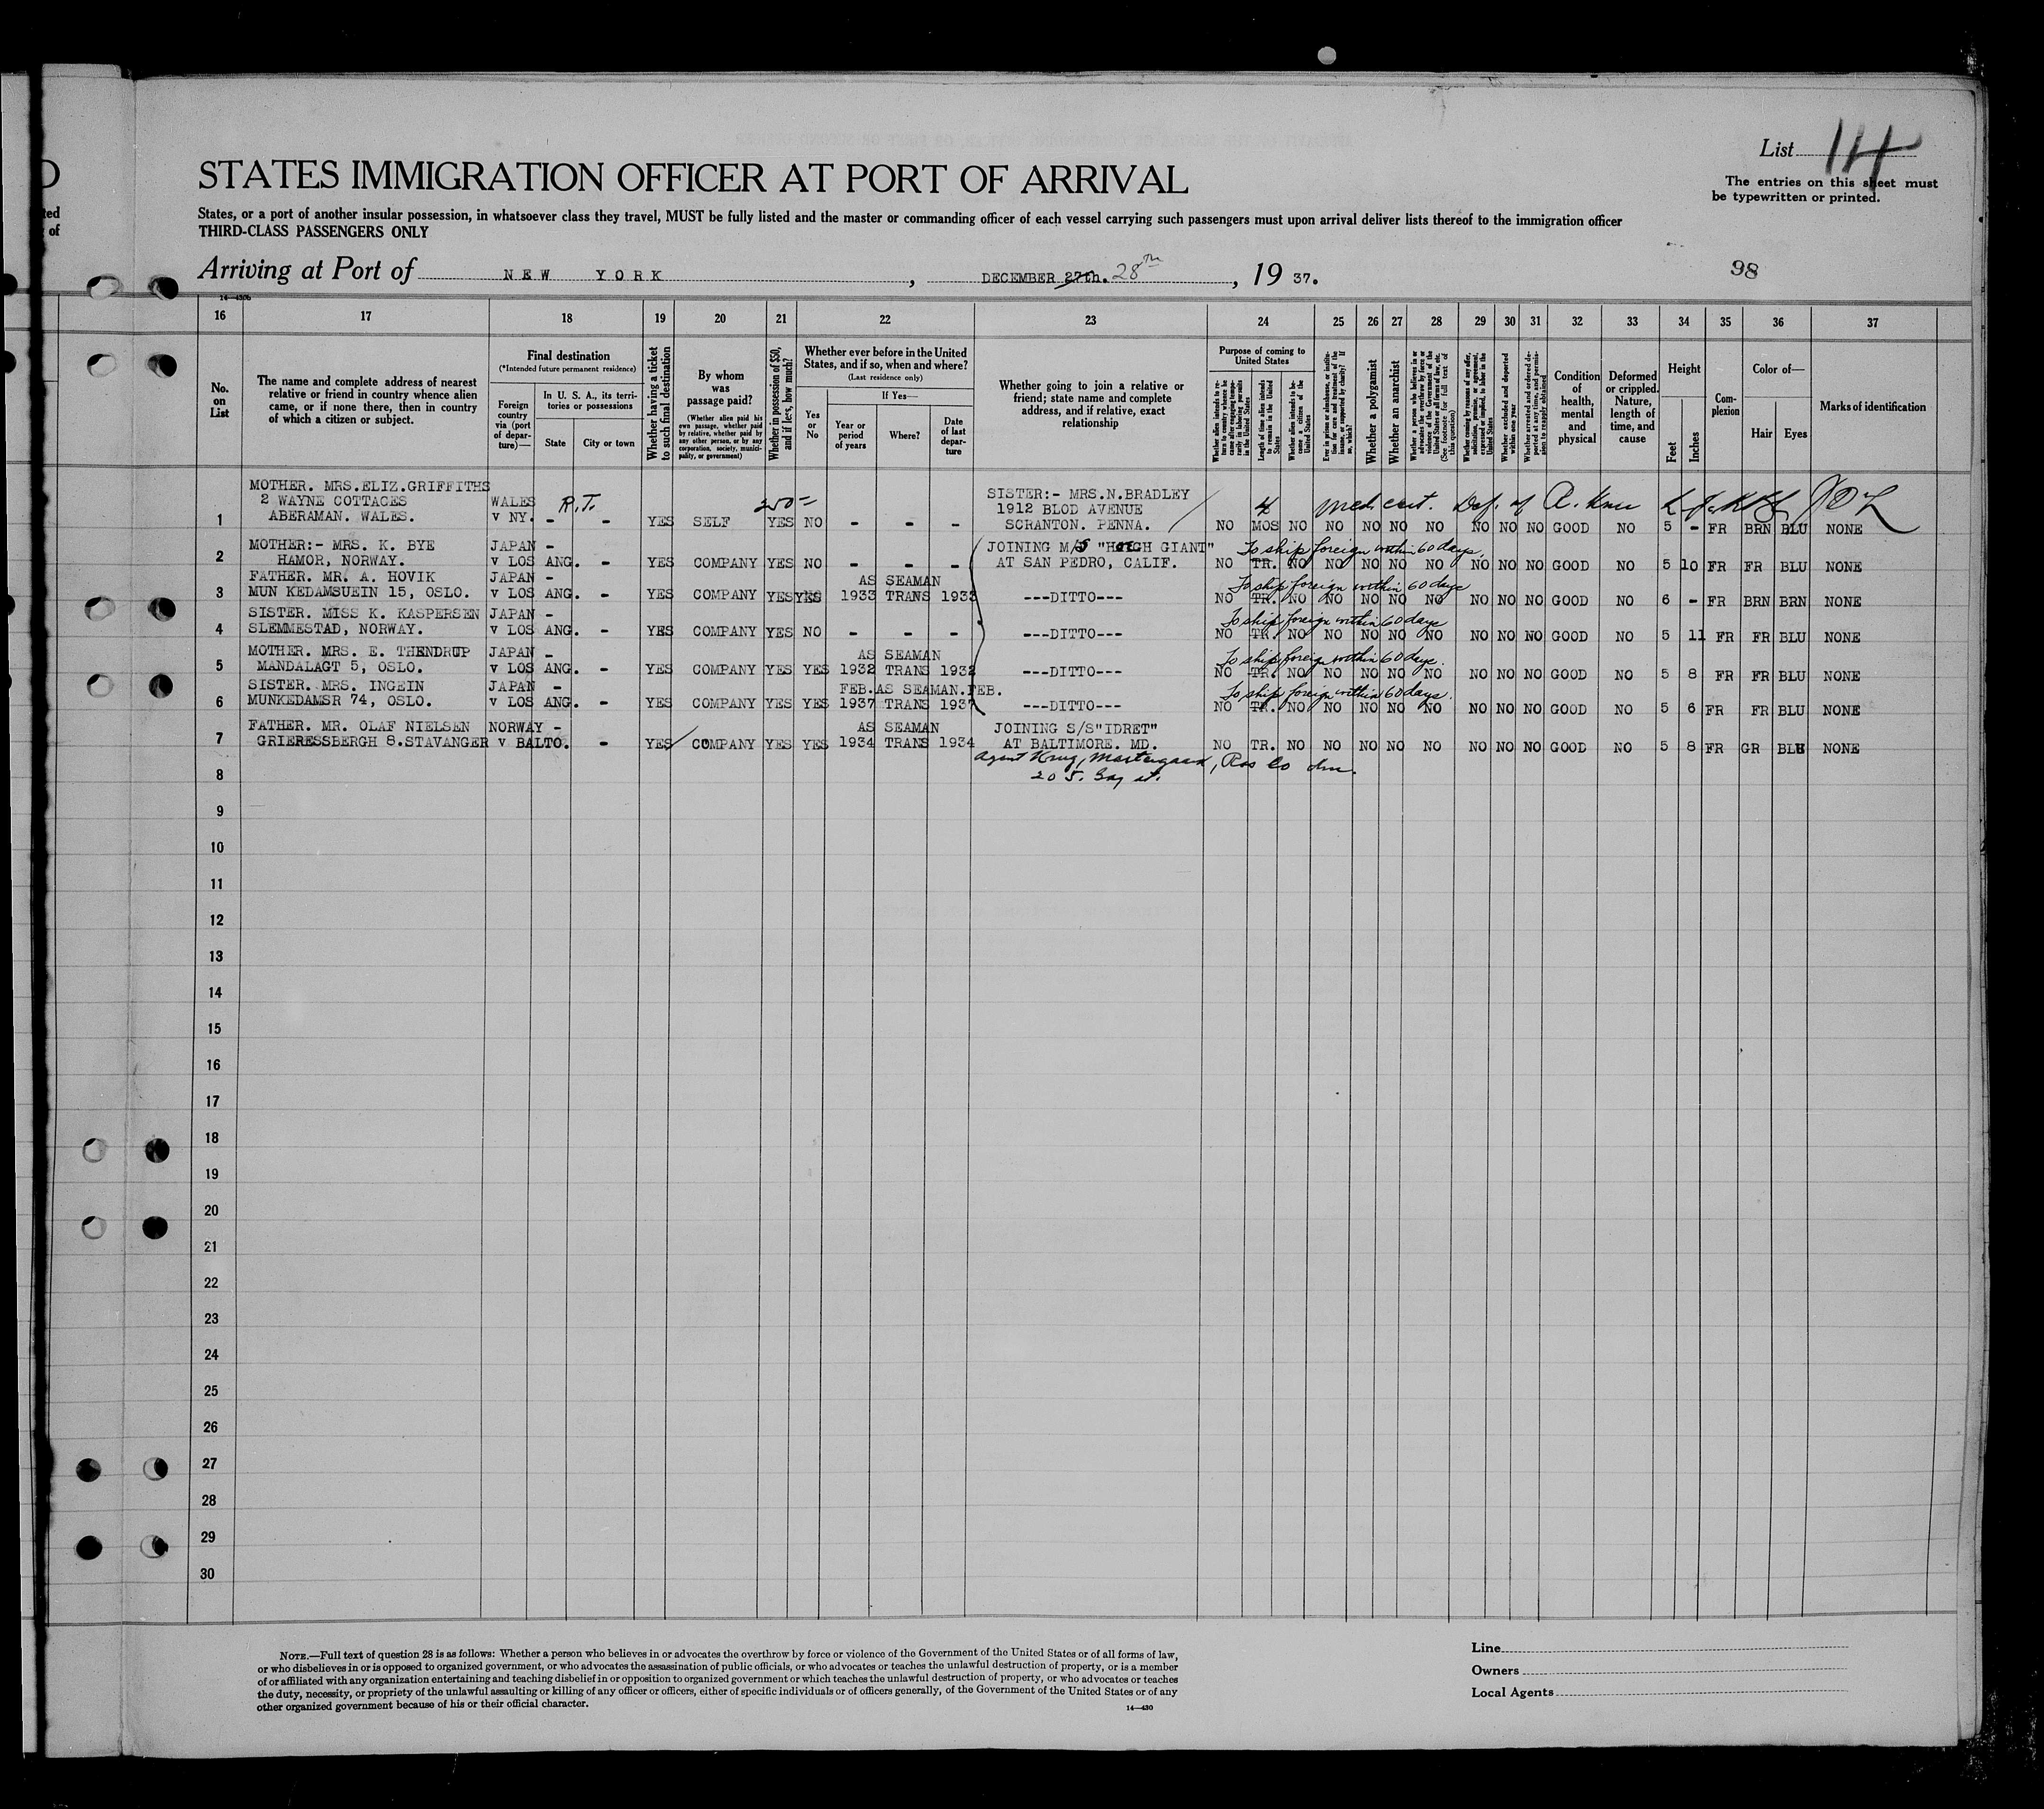 List 114
The entries on this sheet must
be typewritten or printed.
STATES IMMIGRATION OFFICER AT PORT OF ARRIVAL
States, or a port of another insular possession, in whatsoever class they travel, MUST be fully listed and the master or commanding officer of each vessel carrying such passengers must upon arrival deliver lists thereof to the immigration officer
THIRD-CLASS PASSENGERS ONLY
Arriving at Port of NEW YORK, DECEMBER 27th. 28th, 19 37.
98
14—430b
16 17 18 19 20 21 22 23 24 25 26 27 28 29 30 31 32 33 34 35 36 37
No. on List
The name and complete address of nearest relative or friend in country whence alien came, or if none there, then in country of which a citizen or subject.
Final destination
(*Intended future permanent residence)
Foreign country via (port of departure)—
In U. S. A., its territories or possessions
State
City or town
Whether having a ticket to such final destination
By whom was passage paid?
(Whether alien paid his own passage, whether paid by relative, whether paid by any other person, or by any corporation, society, municipality, or government)
Whether in possession of $50, and if less, how much?
Whether ever before in the United States, and if so, when and where?
(Last residence only)
Yes or No
If Yes—
Year or period of years
Where?
Date of last departure
Whether going to join a relative or friend; state name and complete address, and if relative, exact relationship
Purpose of coming to United States
Length of time alien intends to remain in the United States
Whether alien intends to become a citizen of the United States
Whether a polygamist
Whether an anarchist
Condition of health, mental and physical
Deformed or crippled. Nature, length of time, and cause
Height
Feet
Inches
Complexion
Color of—
Hair
Eyes
Marks of identification
MOTHER. MRS.ELIZ.GRIFFITHS
2 WAYNE COTTAGES WALES R.T. 250- SISTER:- MRS.N.BRADLEY
1912 BLOD AVENUE 4 med cert. Def. of
1 ABERAMAN. WALES. v NY. - - YES SELF YES NO - - - SCRANTON. PENNA. NO MOS NO NO NO NO NO NO NO NO GOOD NO 5 - FR BRN BLU NONE
MOTHER:- MRS. K. BYE JAPAN - JOINING M/S "HOEGH GIANT" To ship foreign within 60 days.
2 HAMOR, NORWAY. v LOS ANG. - YES COMPANY YES NO - - - AT SAN PEDRO, CALIF. NO TR. NO NO NO NO NO NO NO NO GOOD NO 5 10 FR FR BLU NONE
FATHER. MR. A. HOVIK JAPAN - AS SEAMAN To ship foreign within 60 days
3 MUN KEDAMSUEIN 15, OSLO. v LOS ANG. - YES COMPANY YES YES 1933 TRANS 1933 ---DITTO--- NO TR. NO NO NO NO NO NO NO NO GOOD NO 6 - FR BRN BRN NONE
SISTER. MISS K. KASPERSEN JAPAN - To ship foreign within 60 days
4 SLEMMESTAD, NORWAY. v LOS ANG. - YES COMPANY YES NO - - - ---DITTO--- NO TR. NO NO NO NO NO NO NO NO GOOD NO 5 11 FR FR BLU NONE
MOTHER. MRS. E. THENDRUP JAPAN - AS SEAMAN To ship foreign within 60 days.
5 MANDALAGT 5, OSLO. v LOS ANG. - YES COMPANY YES YES 1932 TRANS 1932 ---DITTO--- NO TR. NO NO NO NO NO NO NO NO GOOD NO 5 8 FR FR BLU NONE
SISTER. MRS. INGEIN JAPAN - FEB. AS SEAMAN. FEB. To ship foreign within 60 days.
6 MUNKEDAMSR 74, OSLO. v LOS ANG. - YES COMPANY YES YES 1937 TRANS 1937 ---DITTO--- NO TR. NO NO NO NO NO NO NO NO GOOD NO 5 6 FR FR BLU NONE
FATHER. MR. OLAF NIELSEN NORWAY - AS SEAMAN JOINING S/S"IDRET"
7 GRIERESSBERGH 8.STAVANGER v BALTO. - YES COMPANY YES YES 1934 TRANS 1934 AT BALTIMORE. MD. NO TR. NO NO NO NO NO NO NO NO GOOD NO 5 8 FR GR BLU NONE
8
9
10
11
12
13
14
15
16
17
18
19
20
21
22
23
24
25
26
27
28
29
30
NOTE.—Full text of question 28 is as follows: Whether a person who believes in or advocates the overthrow by force or violence of the Government of the United States or of all forms of law,
or who disbelieves in or is opposed to organized government, or who advocates the assassination of public officials, or who advocates or teaches the unlawful destruction of property, or is a member
of or affiliated with any organization entertaining and teaching disbelief in or opposition to organized government or which teaches the unlawful destruction of property, or who advocates or teaches
the duty, necessity, or propriety of the unlawful assaulting or killing of any officer or officers, either of specific individuals or of officers generally, of the Government of the United States or of any
other organized government because of his or their official character.
14—430
Line
Owners
Local Agents